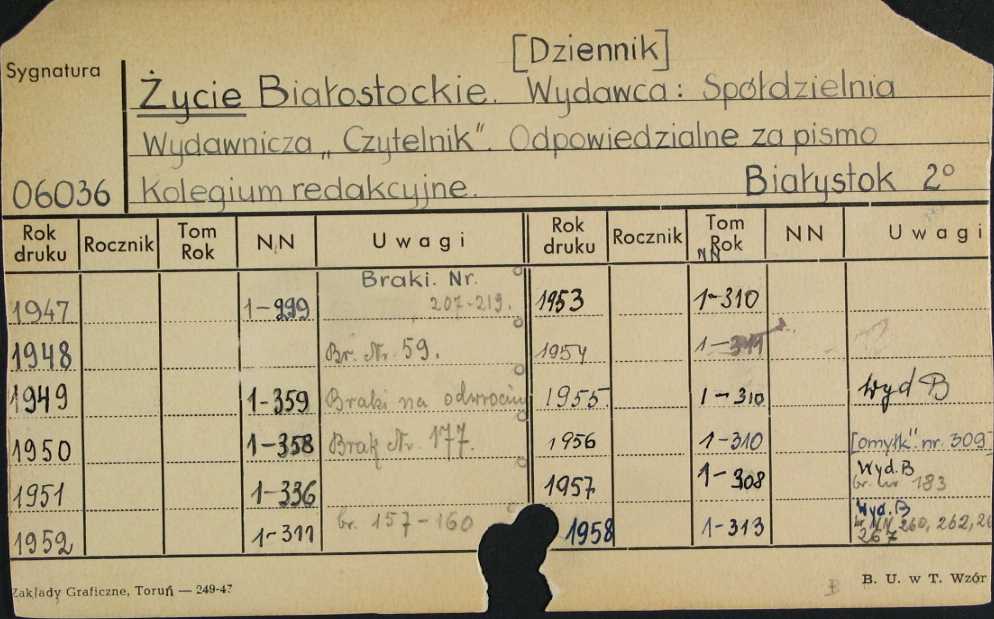 [Dziennik]
Sygnatura
Życie Białostockie. Wydawca: Spółdzielnia
Wydawnicza „Czytelnik". Odpowiedzialne za pismo
06036 Kolegium redakcyjne. Białystok 2°
Rok druku Rocznik Tom Rok NN Uwagi Rok druku Rocznik Tom Rok NN NN Uwagi
Braki. Nr.
1947 1-299 207-219. 1953 1-310
1948 Br. Nr. 59. 1954 1-311
1949 1-359 Braki na odwrociu 1955 1-310 Wyd B
1950 1-358 Brak Nr. 177. 1956 1-310 [omyłk". nr. 309]
1951 1-336 1957 1-308 Wyd. B
br. nr 183
1952 1-311 br. 157-160 1958 1-313 Wyd. B
br. NN 260, 262,
267
Zakłady Graficzne, Toruń — 249-47
B
B. U. w T. Wzór